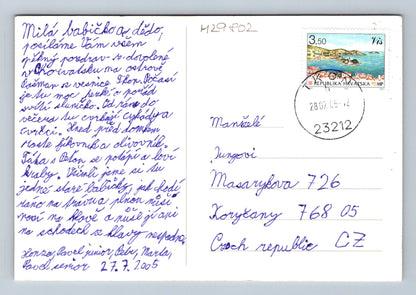 Milá babičko a dědo,
posíláme Vám všem
pěkný pozdrav z dovolené
v Chorvatsku na ostrově
z vesnice Tkon. Počasí
je tu moc hezké a pořád
svítí sluníčko. Od rána do
večera tu cvrkají cykády a
cvrčci. Hned před domkem
roste fíkovník a olivovník.
Táka s Petrem se potápí a loví
kraby. Viděli jsme se tu
jedné staré babičky, jak chodí
ráno na trávu a plnou nůši
nosí na hlavě a nůše jí ani
na schodech se hlavy nespadne.
Honza, Pavel junior, Petr, Marta,
Pavel senior 27.7.2005
H29702
3,50
REPUBLIKA HRVATSKA
TKON
28.07.05-12
23212
Manželé
Jungovi
Masarykova 726
Koryčany 768 05
Czech republic CZ